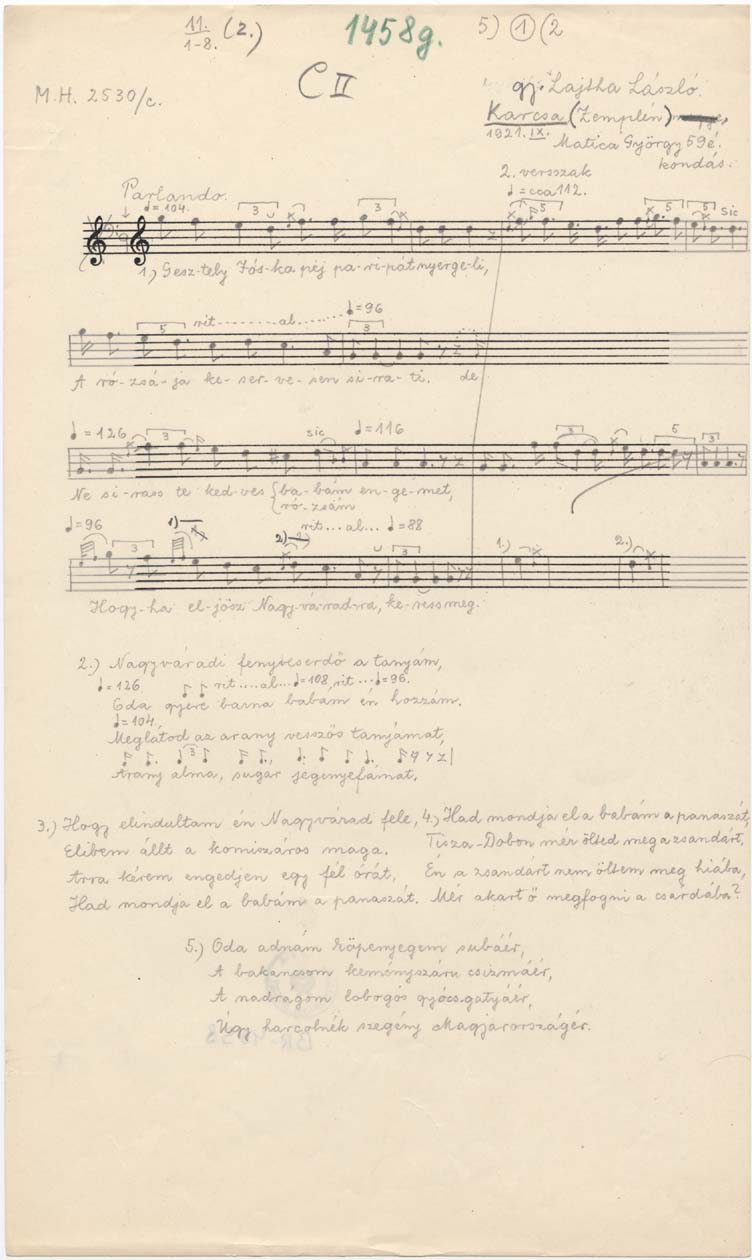 11. (2.) 1458g. 5) 1 (2
1-8.
C II
M.H. 2530/c.
gy. Lajtha László.
Karcsa (Zemplén)
1921. IX.
Matica György 59é.
kondás.
2. versszak
♩=cca 112.
Parlando.
♩=104.
3 3 5 5 5 sic
1.) Gesz-tely Jós-ka péj pa-ri-pát nyerge-li,
5 rit ........ al ........ ♩=96
3
A ró-zsá-ja ke-ser-ve-sen si-ra-ti. de
♩=126 3 sic ♩=116 3 5 3
Ne si-rass te ked-ves ba-bám en-ge-met,
ró-zsám
♩=96 3 1) 2) rit...al... ♩=88 3 1.) 2.)
Hogy-ha el-jösz Nagy-vá-rad-ra, ke-ress meg.
2.) Nagyváradi fenyveserdő a tanyám,
♩=126 rit....al...♩=108, rit...♩=96.
Oda gyere barna babám én hozzám.
♩=104.
Meglátod az arany vesszős tanyámat,
3
Arany alma, sugár jegenyefámat.
3.) Hogy elindultam én Nagyvárad fele,
Elibem állt a komiszáros maga.
Arra kérem engedjen egy fél órát,
Had mondja el a babám a panaszát.
4.) Had mondja el a babám a panaszát,
Tisza-Dobon mér ölted meg a zsandárt,
Én a zsandárt nem öltem meg hiába,
Mér akart ő megfogni a csárdába?
5.) Oda adnám köpenyegem subáér,
A bakancsom keményszáru csizmáér,
A nadragom lobogós gyócsgatyáér,
Úgy harcolnék szegény Magyarországér.